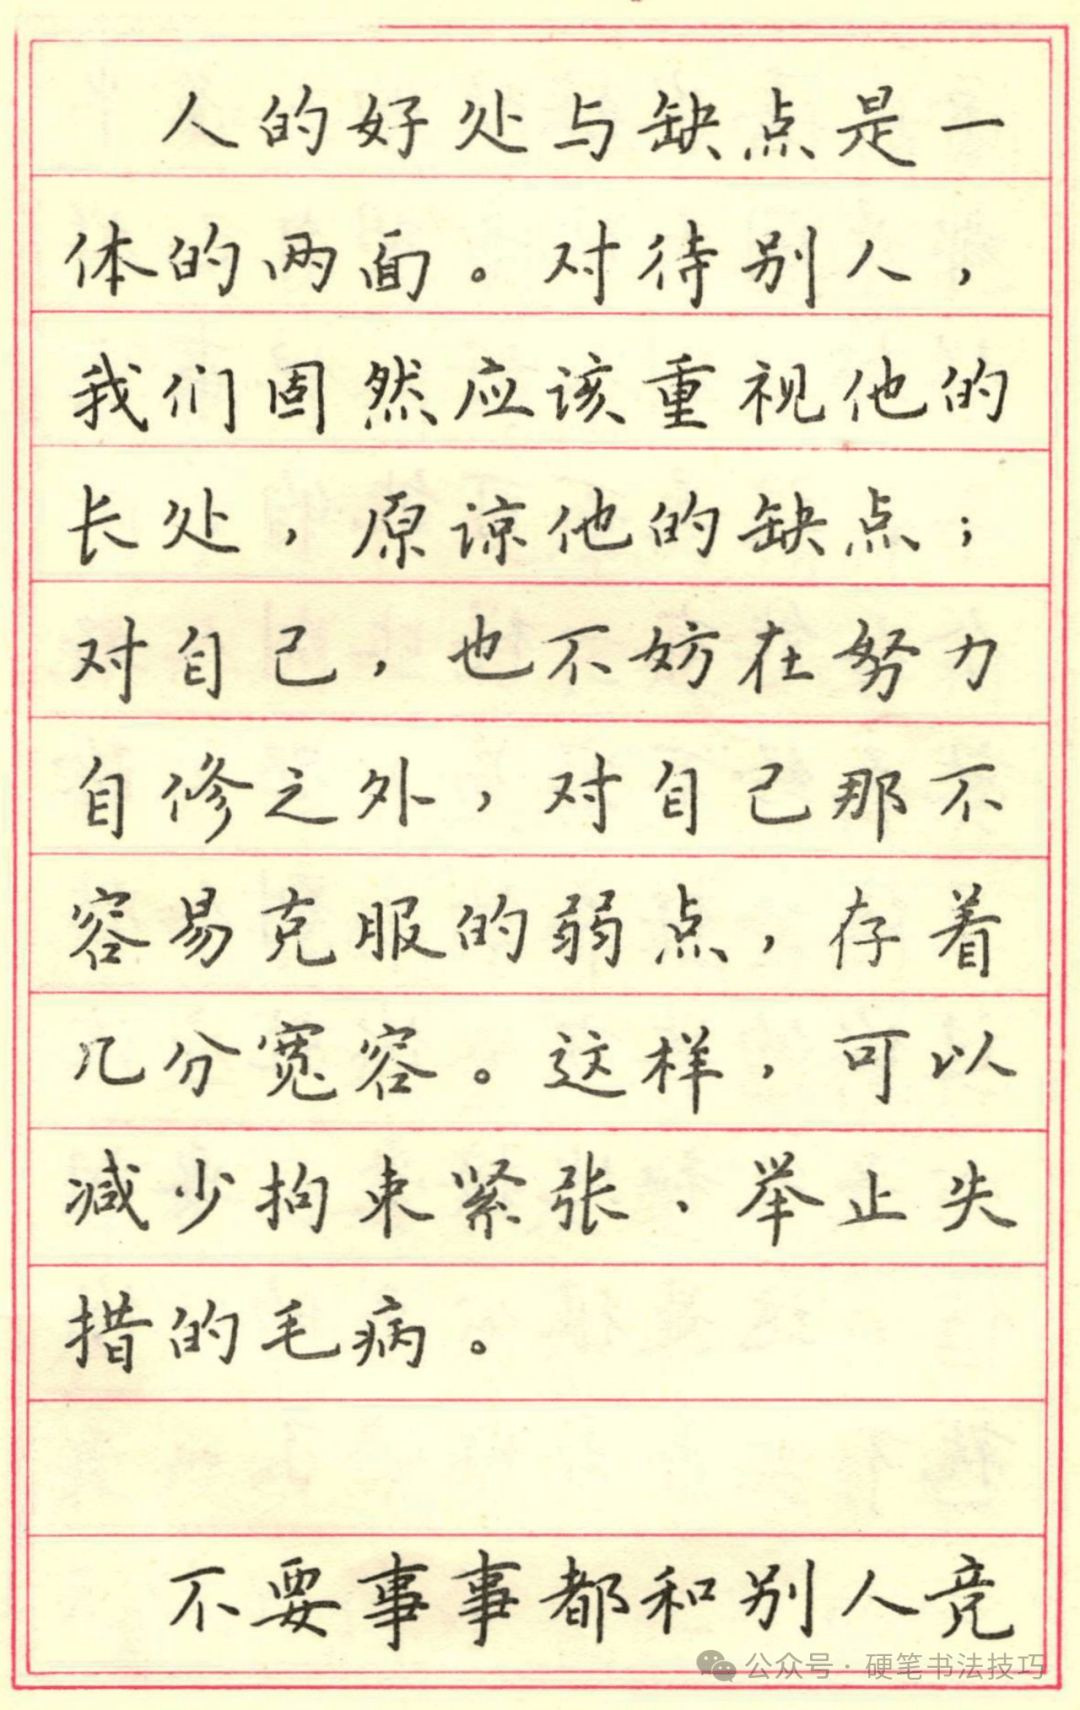 人的好处与缺点是一
体的两面。对待别人，
我们固然应该重视他的
长处，原谅他的缺点；
对自己，也不妨在努力
自修之外，对自己那不
容易克服的弱点，存着
几分宽容。这样，可以
减少拘束紧张、举止失
措的毛病。
不要事事都和别人竞
公众号·硬笔书法技巧